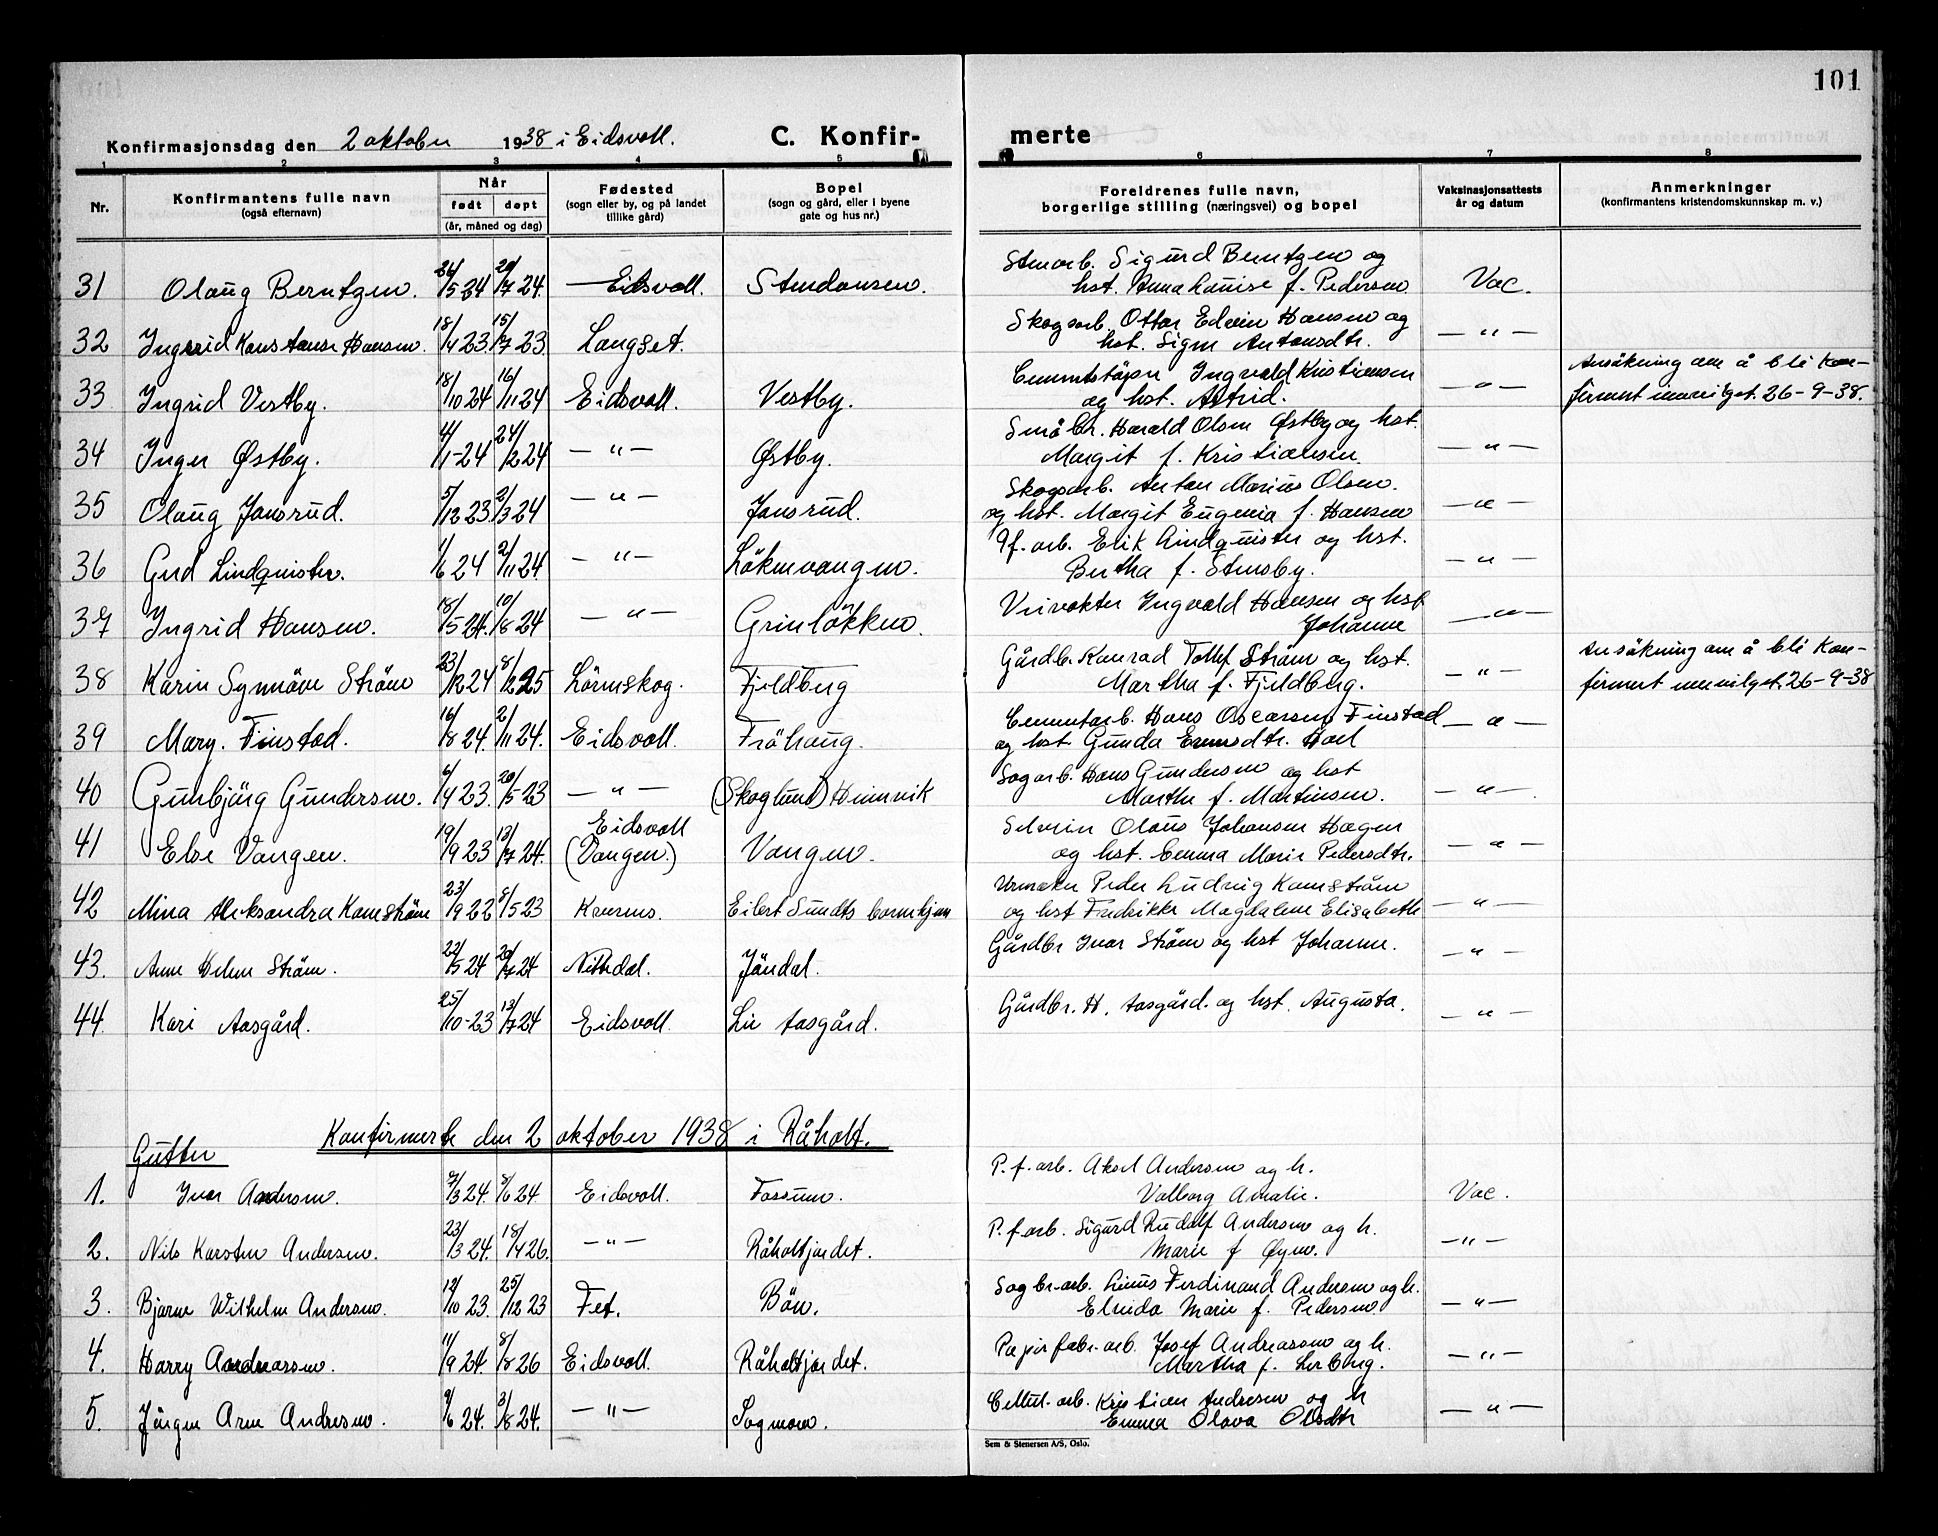 101
Konfirmasjonsdag den 2 oktober 1938 i Eidsvoll. C. Konfir- merte
1 2 3 4 5 6 7 8
Nr. Konfirmantens fulle navn (også efternavn) Når født døpt (år, måned og dag) Fødested (sogn eller by, og på landet tillike gård) Bopel (sogn og gård, eller i byene gate og hus nr.) Foreldrenes fulle navn, borgerlige stilling (næringsvei) og bopel Vaksinasjonsattests år og datum Anmerkninger (konfirmantens kristendomskunnskap m. v.)
Stenarb. Sigurd Berntzen og
31 Olaug Berntzen. 24/5 24 20/7 24. Eidsvoll. Stendansen. hst. Anna Louise f. Pedersen Vac.
Skogsarb. Ottar Edvin Hansen og
32 Ingrid Konstanse Hansen. 18/4 23. 15/7 23. Langset. hst. Signe Antonsdtr. — " —
Cementstøper Ingvald Kristiansen Ansøkning om å bli kon-
33 Ingrid Vestby. 18/10 24 16/11 24 Eidsvoll. Vestby. og hst. Astrid. — " — firmert innvilget. 26-9-38.
Småbr. Harald Olsen Østby og hst.
34 Inger Østby. 4/1-24 24/2 24 — " — Østby. Margit f. Kristiansen. — " —
Skogsarb. Anton Marius Olsen.
35 Olaug Jansrud. 5/12 23. 2/3 24 — " — Jansrud. og hst. Margit Eugenia f. Hansen — " —
Pf. arb. Erik Lindquister og hst.
36 Gerd Lindquister. 1/6 24 2/11 24 — " — Løkenvangen. Bertha f. Stensby. — " —
Veivokter Ingvald Hansen og hst
37 Ingrid Hansen. 18/5 24. 10/8 24 — " — Grinløkken. Johanne — " —
Gårdb. Konrad Tollef Strøm og hst. Ansøkning om å bli kon-
38 Karin Synnøve Strøm 23/12 24 8/2 25 Lørenskog. Fjeldberg Martha f. Fjeldberg. — " — firmert innvilget. 26-9-38
Cementarb. Hans Oscarsen Finstad
39 Mary. Finstad. 16/8 24. 2/11 24. Eidsvoll. Frøhaug. og hst. Gunda Evensdtr. Hoel — " —
Sagarb. Hans Gundersen og hst
40 Gunbjørg Gundersen. 6/4 23. 20/5 23 — " — (Skoglund) Heimvik Marthe f. Martinsen. — " —
Eidsvoll Olaus Johansen Hagen
41 Else Vangen. 19/9 23 13/7 24. (Vangen.) Vangen. og hst. Emma Marie Pedersdtr. — " —
Urmaker Peder Ludvig Kamstrøm
42 Mina Aleksandra Kamstrøm 23/9 22 8/5 23 Eilert Sundts og hst Fredrikke Magdalene Elisabeth — " —
Gårdbr Ivar Strøm og hst Johanne.
43. Anne Helene Strøm. 22/5 24 20/7 24 Nittedal. Jøndal. — " —
44. Kari Aasgård. 25/10-23 13/7 24 Eidsvoll. Lie Aasgård. Gårdbr. H. Aasgård. og hst. Augusta. — " —
Konfirmerte den 2 oktober 1938 i Råholt.
Gutter
P. f. arb. Aksel Andersen og h.
1. Ivar Andersen. 7/3 24. 9/6 24 Eidsvoll. Fossum. Valborg Amalie. Vac.
P. f arb. Sigurd Rudolf Andersen og h.
2. Nils Karsten Andersen. 23/3 24. 18/4 26. — " — Råholtjordet. Marie f Øyen. — " —
Sagbr-arb. Linus Ferdinand Andersen og h.
3. Bjarne Wilhelm Andersen. 12/10 23. 25/12 23 Fet. Bøn. Elvida Marie f. Pedersen — " —
Papirfabr. arb. Josef Andreassen og h.
4. Harry Andreassen. 11/9 24. 8/8 26 Eidsvoll. Råholtjordet. Martha f. Lerberg. — " —
Cellul. arb. Kristian Andresen og h
5. Jørgen Arne Andresen. 9/6 24. 3/8 24. — " — Sagmoen. Emma Olava Olsdtr — " —
Sem & Stenersen A/S, Oslo.